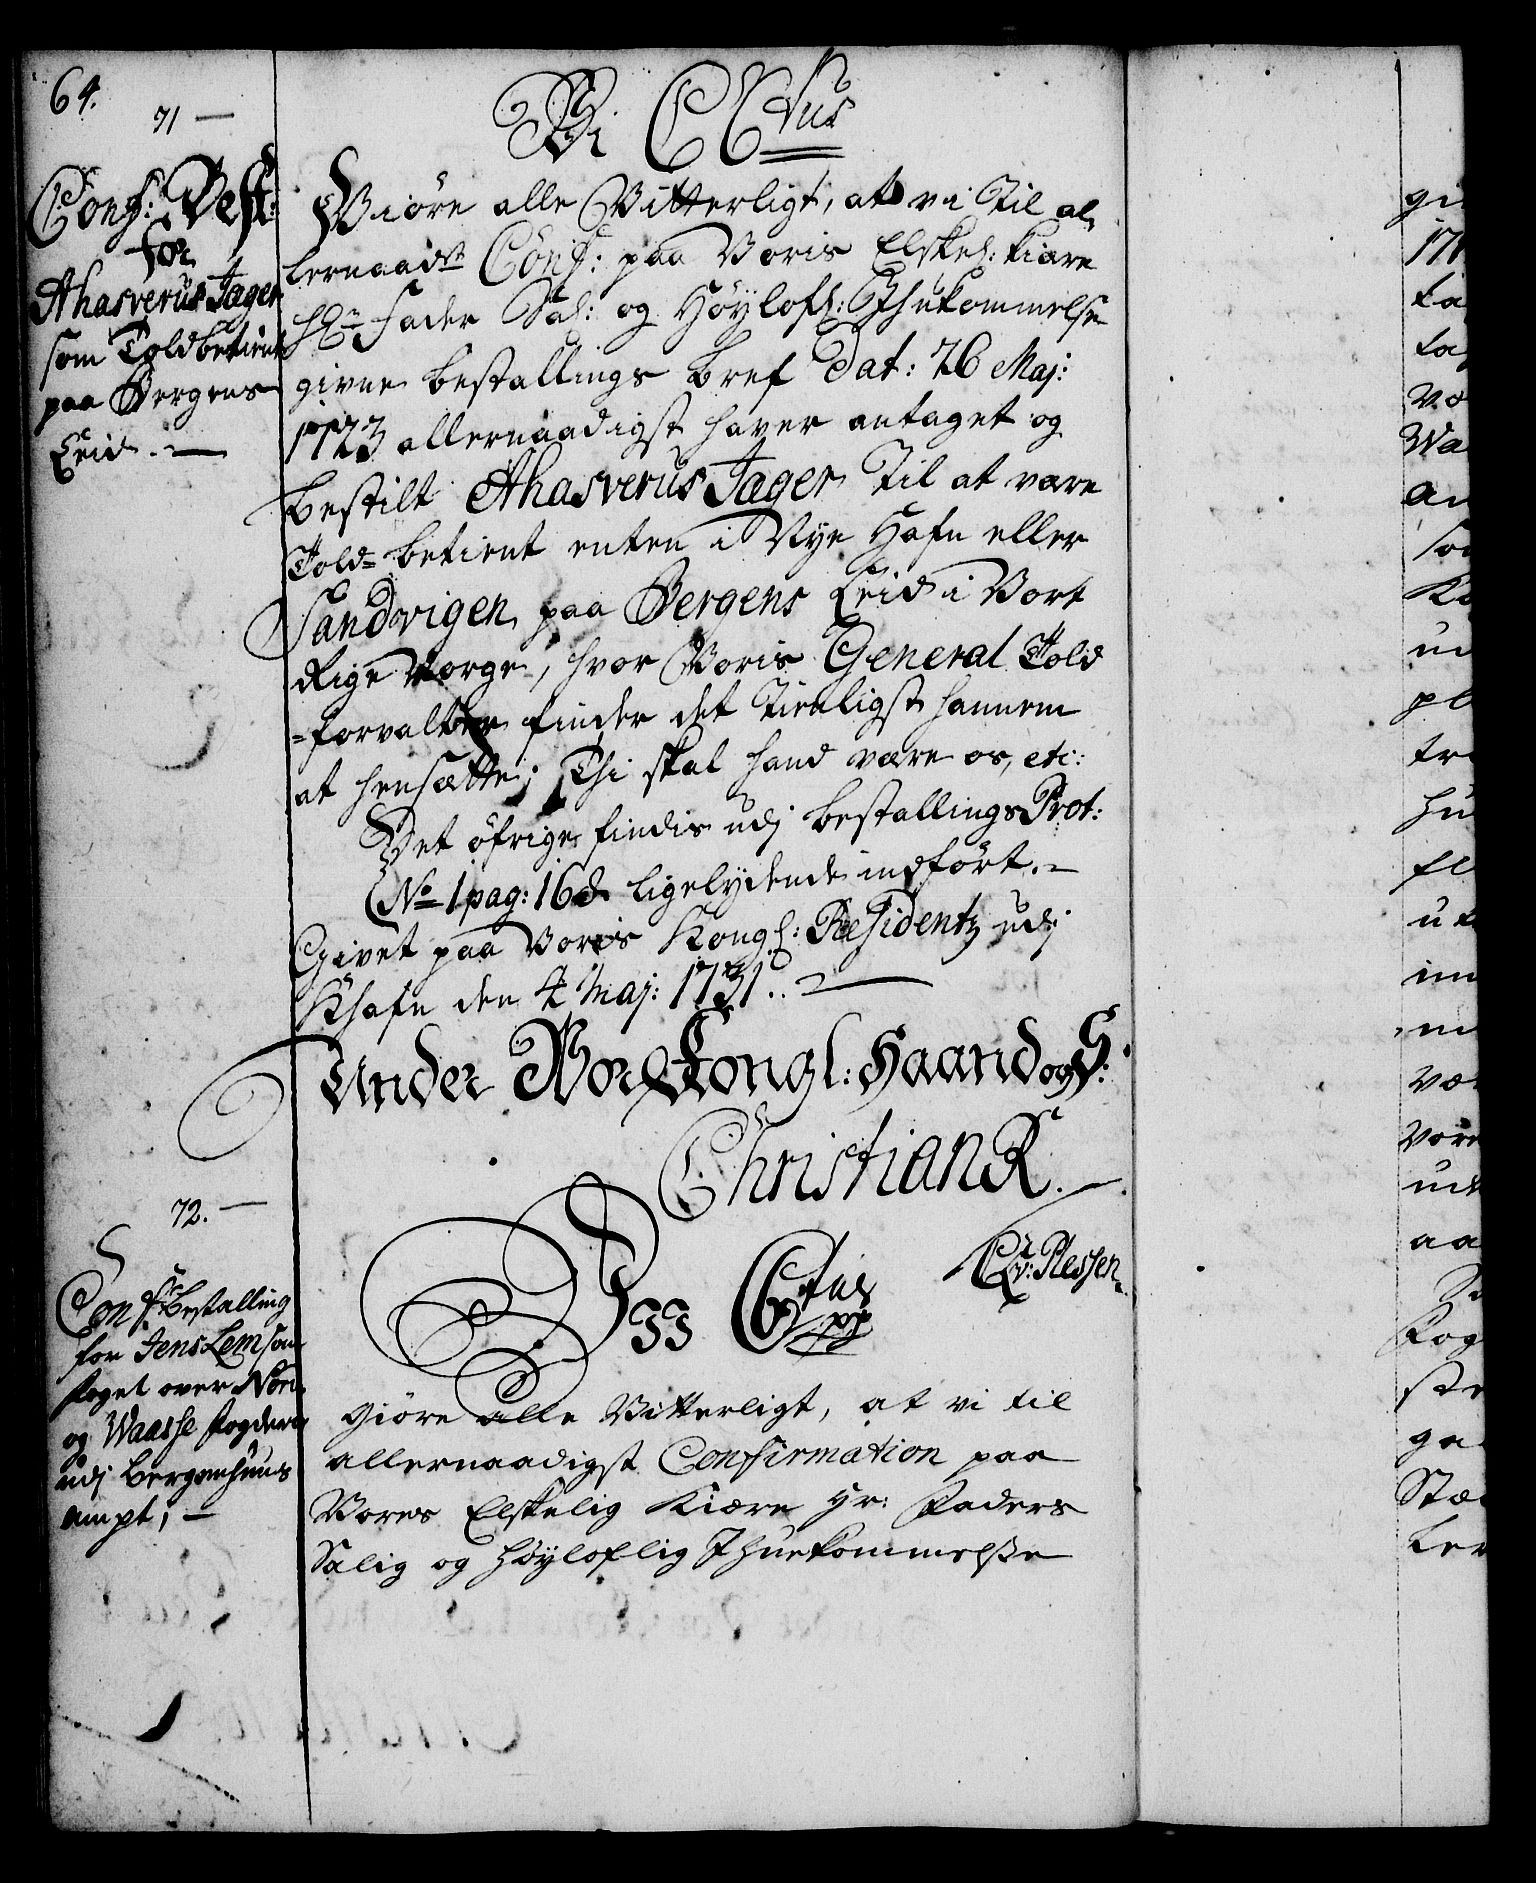 64.
71 —
Conf: Best:
for
Ahasverus Jager
som Toldbetient
paa Bergens
Leid. —
Vi C 6tus
Giöre alle Vitterligt, at vi Til al-
lernaadst Conf: paa Voris Elskel: kiære
Hr Fader Sal: og Höylofl: Ihukommelse
givne bestallings bref Dat: 26 Maj:
1723 allernaadigst haver antaget og
bestilt Ahasverus Jager Til at være
Told-betient enten i Nye Hafn eller
Sandvigen paa Bergens Leid i Vort
Rige Norge, hvor Voris General Told
-forvalter finder det Tienligst hannem
at hensætte; Thi skal hand være os, etc:
Det öfrige findis udj bestallings Prot:
No 1 pag: 168 ligelydende indfört. —
Givet paa Voris Kongl: Residentz udj
Khafn den 4 Maj: 1731. —
Under Vor Kongl: Haand og S:
Christian R.
C A v: Plessen.
72. —
Conf: bestalling
for Jens Lem som
foget over Nord
og Waasse fogderie
udj bergenhuus
ampt; —
Vii C 6tus
pp
giöre alle Vitterligt, at vi til
allernaadigst Confirmation paa
Vores Elskelig Kiære Hr: Faders
Salig og höyloflig Ihuekommelsse